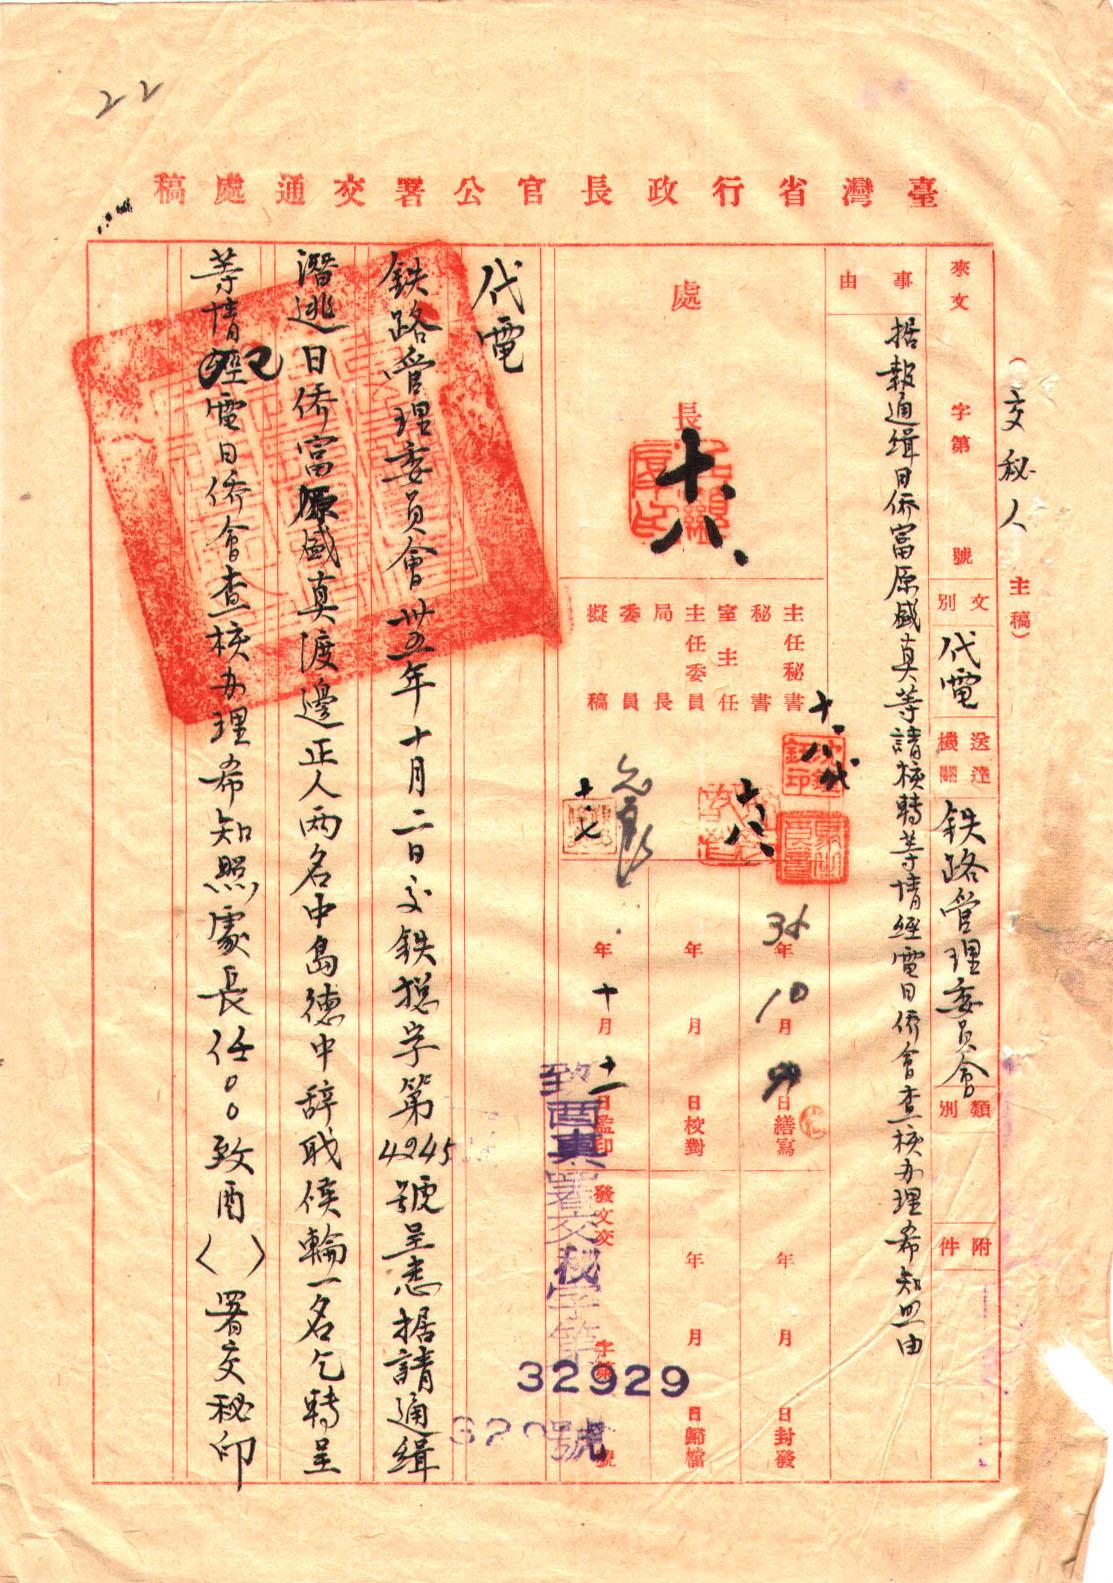 22
臺灣省行政長官公署交通處稿
（交秘人 主稿）
來文 字第 號
文別 代電
送達機關 鉄路管理委員會
類別
附件
事由 据報通缉日侨富原盛真等請核轉等情経電日侨會查核办理希知照由
處長 十、八、
主任秘書 十、八代
秘書
室主任 十八
主任委員
局長
委員
擬稿 十、七
35年10月9日繕寫
年 月 日校對
年十月十一日監印
年 月 日封發
年 月 日歸檔
發文交 字第 號
致酉真署交秘字第 號
32929
代電
鉄路管理委員會卅五年十月二日交鉄总字第4245號呈悉据請通缉
潛逃日侨富原盛真渡邊正人两名中島德中辞职候輪一名乞轉呈
等情已經電日侨會查核办理希知照處長任○○致酉〈 〉署交秘印